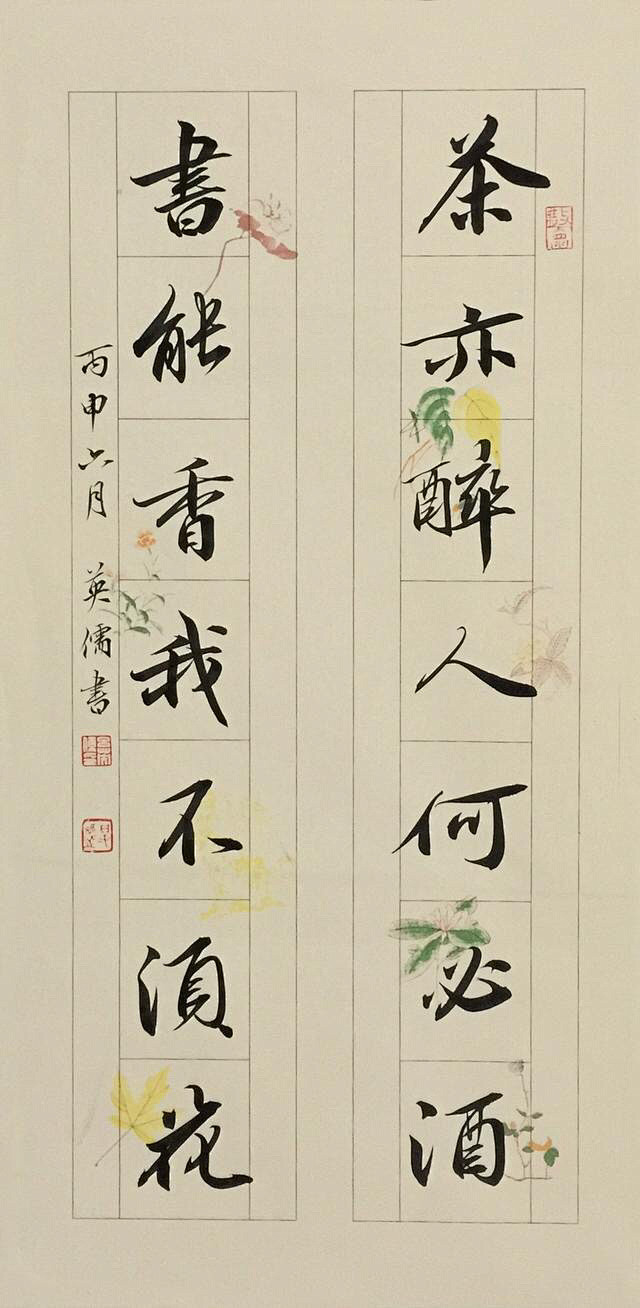 茶亦醉人何必酒
書能香我不須花
丙申六月 英儒書